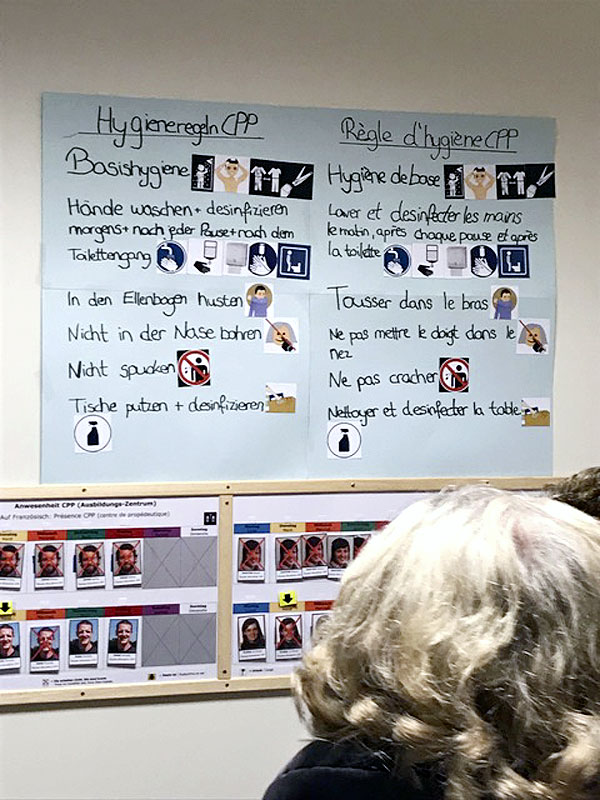 Hygieneregeln CPP
Basishygiene
Hände waschen + desinfizieren
morgens + nach jeder Pause + nach dem
Toilettengang
In den Ellenbogen husten
Nicht in der Nase bohren
Nicht spucken
Tische putzen + desinfizieren
Règle d'hygiène CPP
Hygiène de base
Laver et desinfecter les mains
le matin, après chaque pause et après
la toilette
Tousser dans le bras
Ne pas mettre le doigt dans le
nez
Ne pas cracher
Nettoyer et desinfecter la table
Anwesenheit CPP (Ausbildungs-Zentrum)
Auf Französisch: Présence CPP (centre de propédeutique)